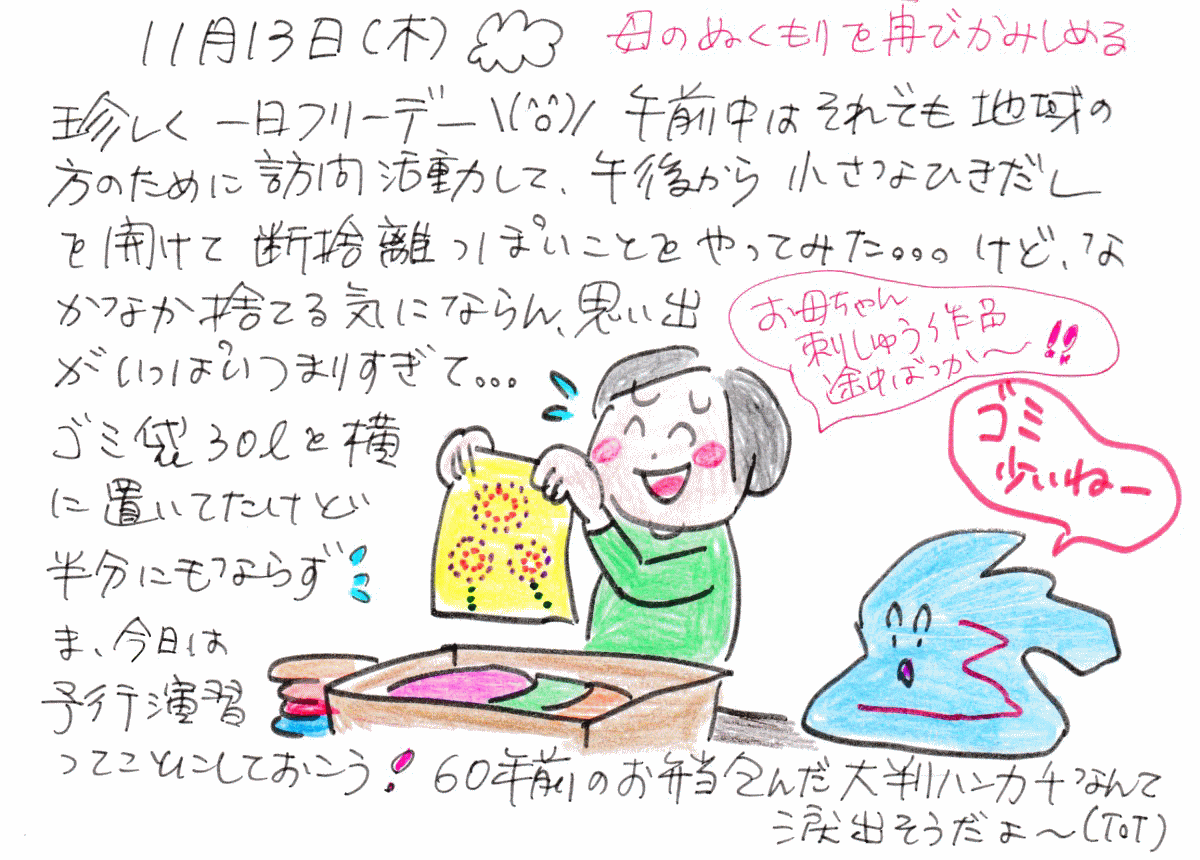 11月13日(木)
母のぬくもりを再びかみしめる
珍しく一日フリーデー\(^o^)/ 午前中はそれでも地域の
方のために訪問活動して、午後から小さなひきだし
を開けて断捨離っぽいことをやってみた。。。けど、な
かなか捨てる気にならん、思い出
がいっぱいつまりすぎて...
お母ちゃん
刺しゅう作品
途中ばっか〜!!
ゴミ
少いねー
ゴミ袋30ℓを横
に置いてたけど
半分にもならず
ま、今日は
予行演習
ってことにしておこう!
60年前のお弁当包んだ大判ハンカチなんて
涙出そうだよ〜(ToT)